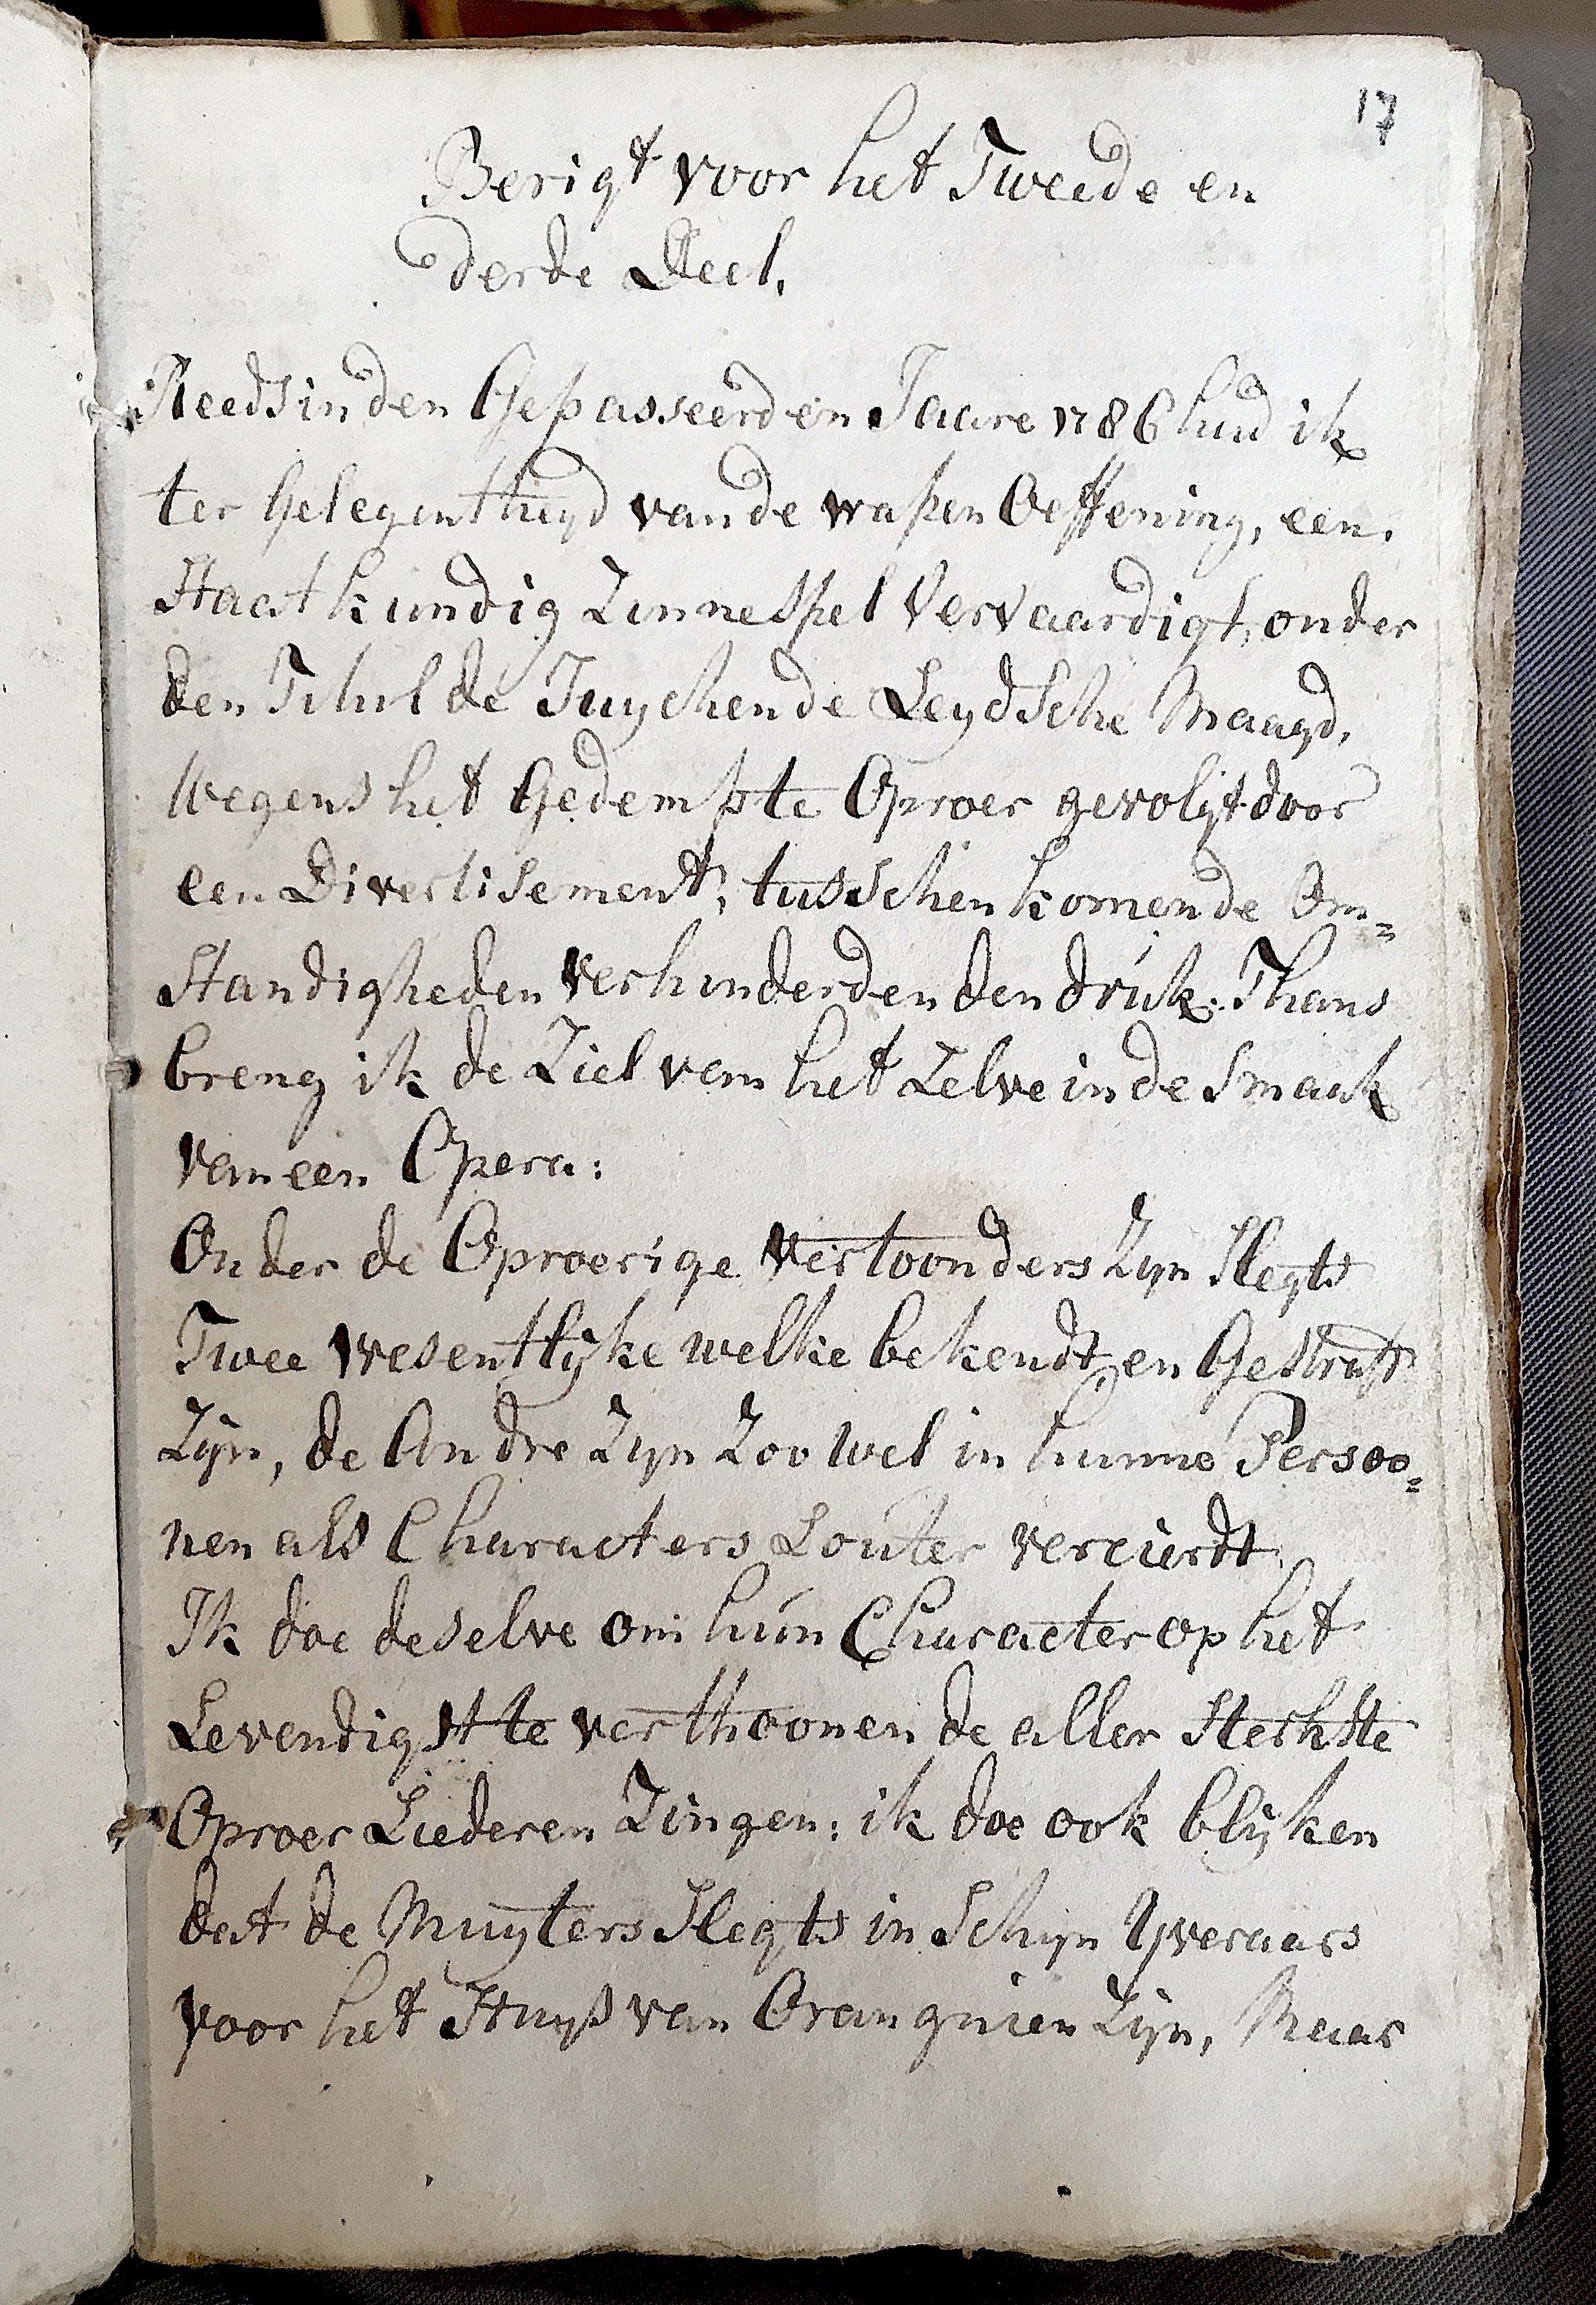 17
Berigt voor het Tweede en
derde Deel.
Reeds in den Gepasseerden Jaare 1786 had ik
ter Gelegentheyd van de wapen Oeffening, een
Staatkundig Zinnespel Vervaardigt, onder
den Titul de Juychende Leydsche Maagd,
Wegens het Gedempte Oproer gevolgt door
een Divertisement; tusschen komende Om=
standigheden verhinderden den druk: Thans
breng ik de Ziel van het Zelve in de Smaak
van een Opera:
Onder de Oproerige vertoonders Zyn Slegts
Twee wesentlyke welke bekendt en Gestraft
Zyn, de Andre Zyn Zoo wel in hunne Persoo=
nen als Characters Louter vercierdt.
Ik doe deselve om hun Character op het
Levendigst te verthoonen de aller Sterkste
Oproer Liederen Zingen: ik doe ook blyken
dat de Muyters Slegts in Schyn Yveraars
voor het Huyß van Orangnien Zyn, Maar